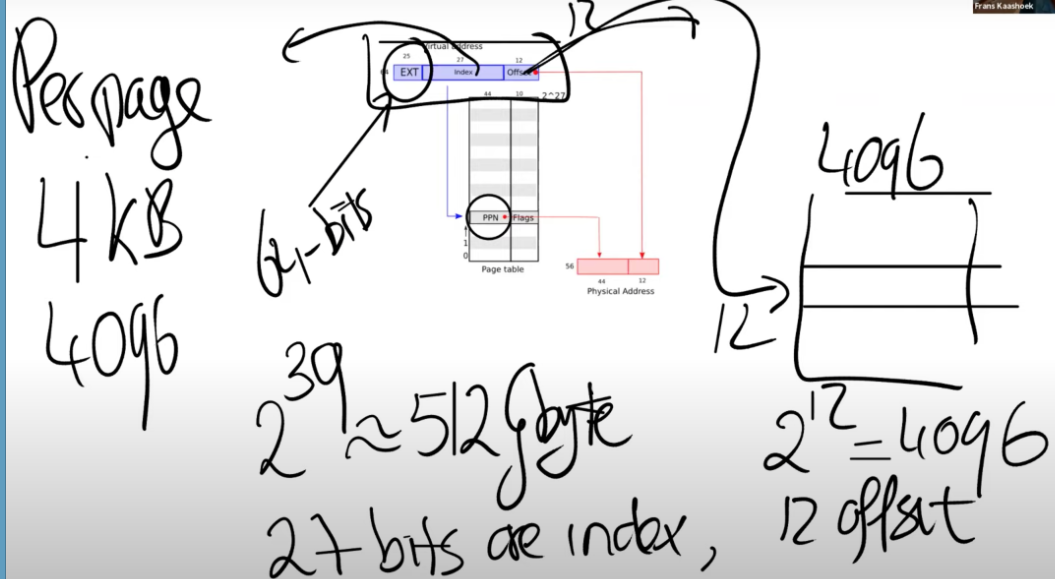 Frans Kaashoek
Per page
4 kB
4096
64-bits
12
Virtual address
25 27 12
64 EXT Index Offset
44 10 2^27
PPN Flags
1
0
Page table
56
44 12
Physical Address
4096
12
2^39 ≈ 512 Gbyte
2^12 = 4096
27 bits are index,
12 offset